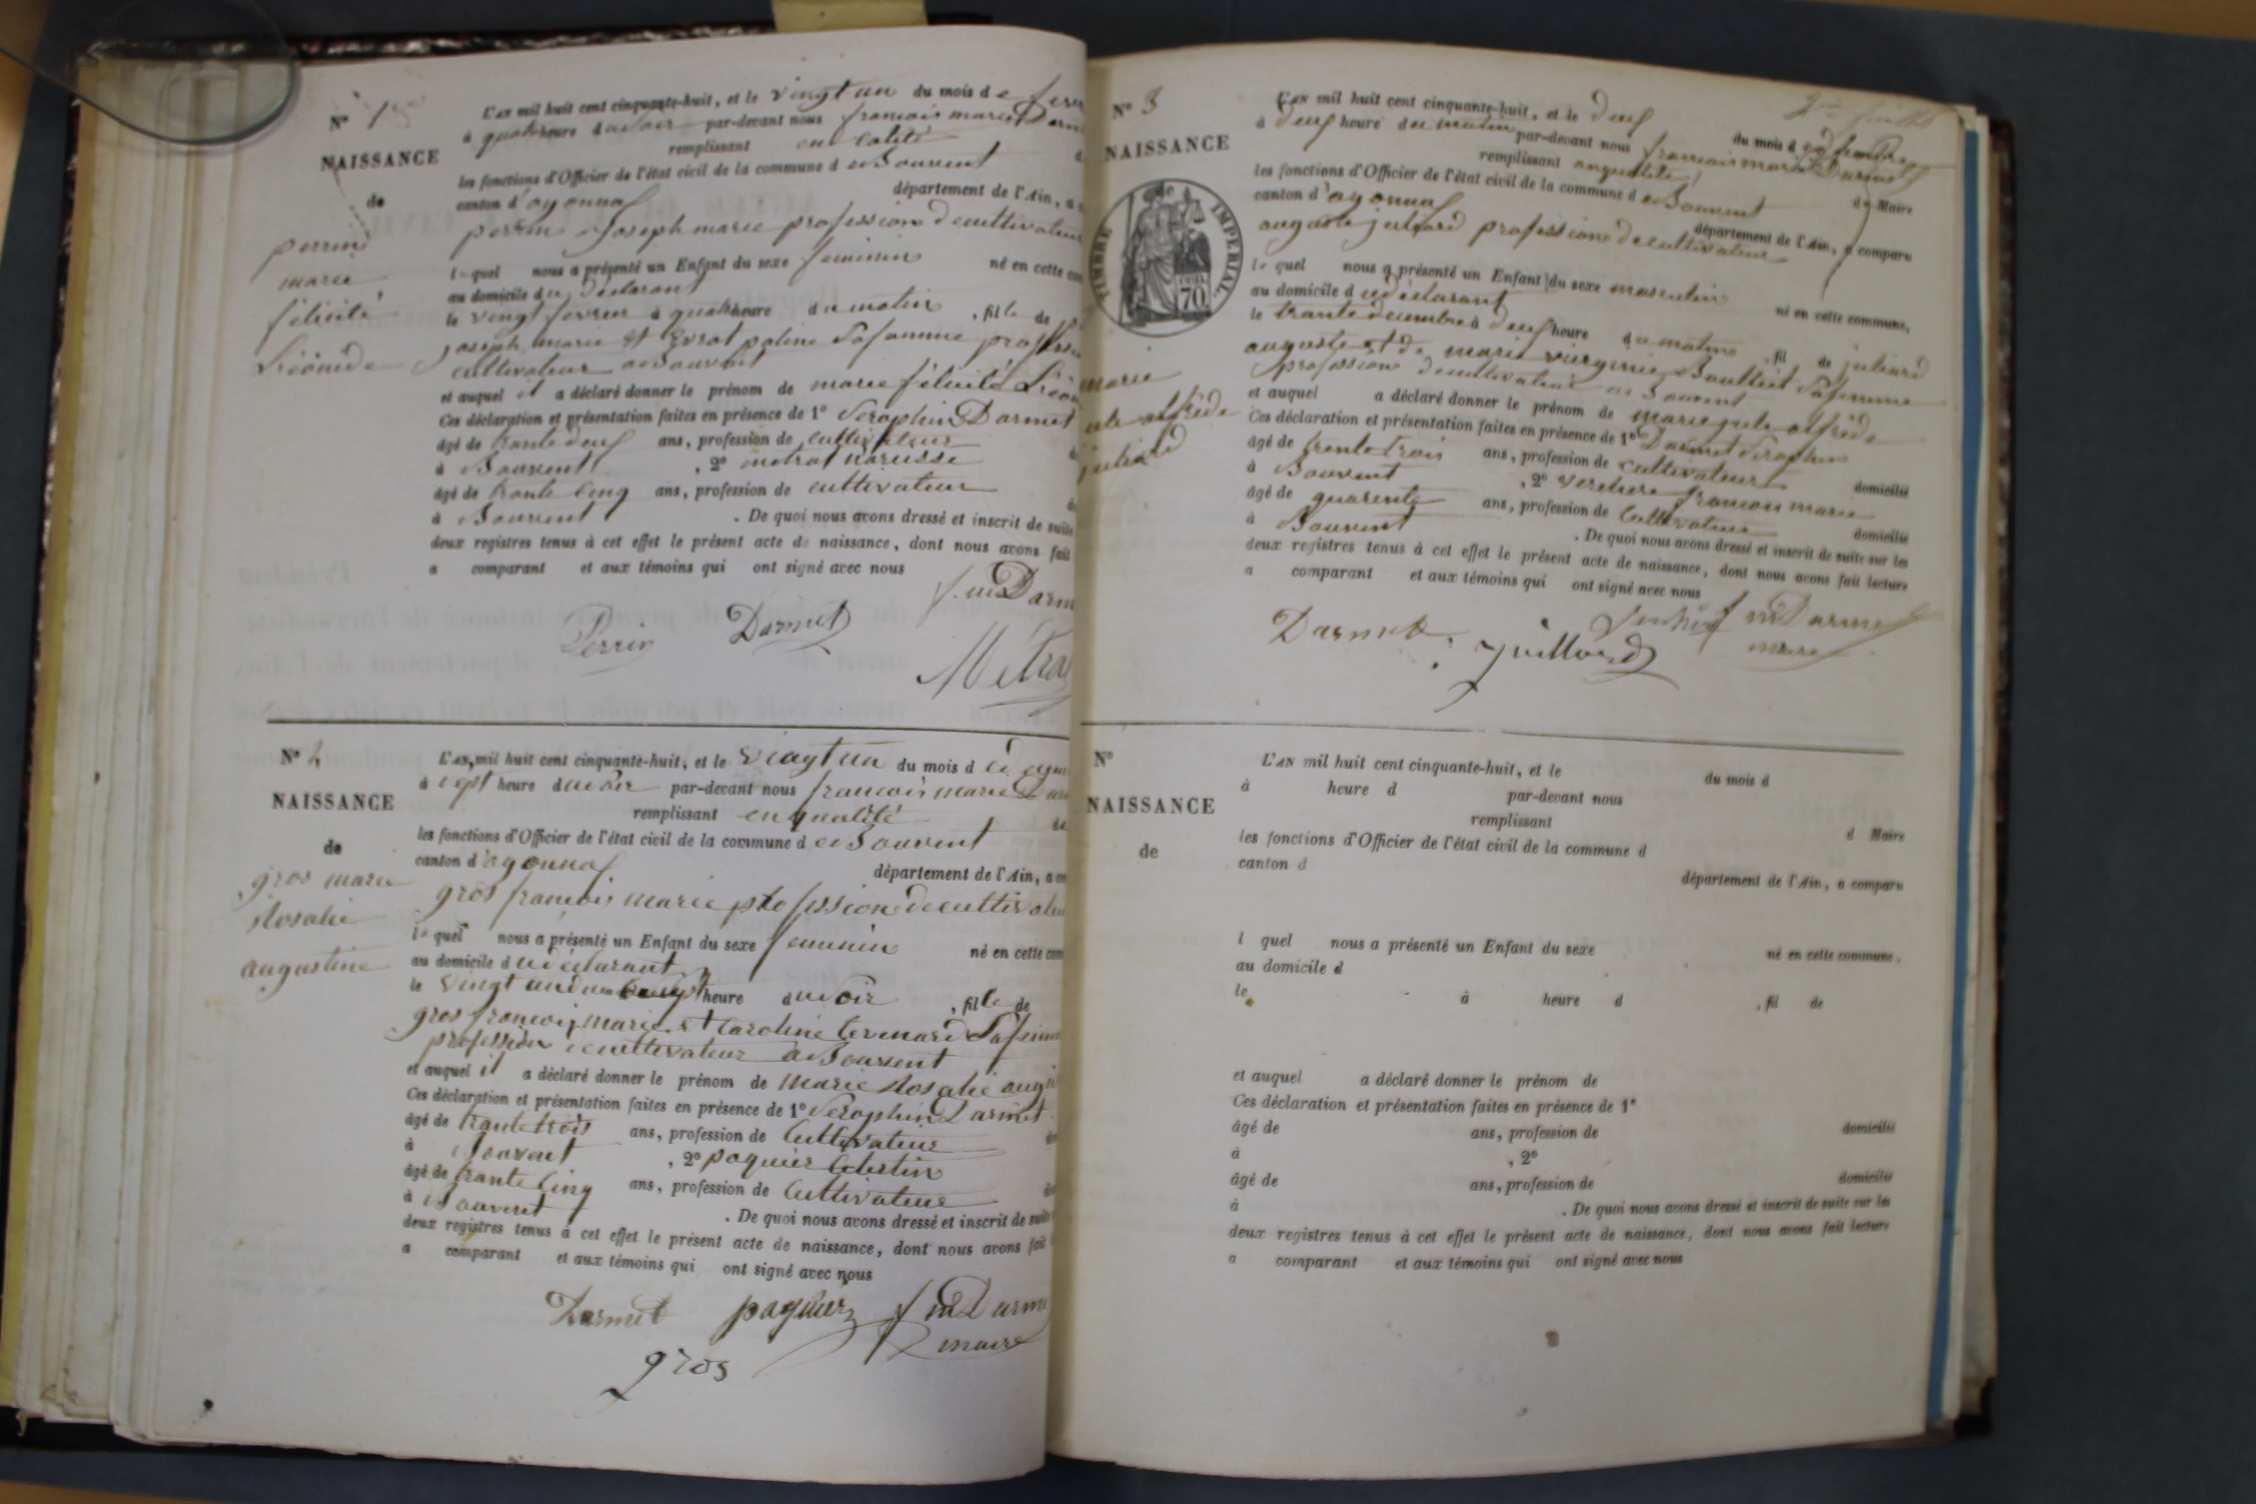 N° 1
NAISSANCE
de
perrin
marie
félicité
Léonide
L'AN mil huit cent cinquante-huit, et le vingt un du mois de
à quatre heure du soir par-devant nous francois marie Darm
remplissant
les fonctions d'Officier de l'état civil de la commune de Bouvent
canton d'oyonnax
département de l'Ain, a
perrin Joseph marie profession de cultivateur
lequel nous a présenté un Enfant du sexe feminin né en cette com
au domicile du déclarant
le vingt fevrier à quatre heure du matin, fille de
joseph marie et Evrat poline Safamme
cultivateur a Bouvent
et auquel il a déclaré donner le prénom de marie félicité Léon
Ces déclaration et présentation faites en présence de 1° Seraphin Darmet
âgé de trante deuf ans, profession de cultivateur
à Bouvent, 2° metrat narcisse
âgé de trante cinq ans, profession de cultivateur
à Bouvent. De quoi nous avons dressé et inscrit de suite
deux registres tenus à cet effet le présent acte de naissance, dont nous avons fait
a comparant et aux témoins qui ont signé avec nous
f. m Darm
Perrin Darmet
Métra
N° 2
NAISSANCE
de
gros marie
Rosalie
augustine
L'AN mil huit cent cinquante-huit, et le vingt un du mois d
à sept heure du soir par-devant nous francois marie Dar
remplissant en qualité de
les fonctions d'Officier de l'état civil de la commune de Bouvent
canton d'oyonnax
département de l'Ain, a com
gros francois marie profession de cultivateu
lequel nous a présenté un Enfant du sexe feminin né en cette com
au domicile du déclarant
le vingt un heure du soir, fille de
gros francois marie et Caroline Safamme
profession de cultivateur a Bouvent
et auquel il a déclaré donner le prénom de marie Rosalie aug
Ces déclaration et présentation faites en présence de 1° Seraphin Darmet
âgé de trante trois ans, profession de cultivateur
à Bouvent, 2° paquier Celestin
âgé de trante cinq ans, profession de cultivateur
à Bouvent. De quoi nous avons dressé et inscrit de suite
deux registres tenus à cet effet le présent acte de naissance, dont nous avons fait
a comparant et aux témoins qui ont signé avec nous
Darmet paquier f m Darme
maire
gros
N° 3
NAISSANCE
de
TIMBRE IMPERIAL
70
marie
jule alfrède
juliard
L'AN mil huit cent cinquante-huit, et le deuf du mois d
à deuf heure du matin par-devant nous francois marie Darmet
remplissant en qualité de Maire
les fonctions d'Officier de l'état civil de la commune de Bouvent
canton d'oyonnax
département de l'Ain, a comparu
auguste juliard profession de cultivateur
lequel nous a présenté un Enfant du sexe masculin né en cette commune,
au domicile du déclarant
le trante décembre à deuf heure du matin, fil de juliard
auguste et de marie virginie Safamme
profession de cultivateur a Bouvent
et auquel a déclaré donner le prénom de marie jule alfrède
Ces déclaration et présentation faites en présence de 1° Darmet Seraphin
âgé de trente trois ans, profession de cultivateur domicilié
à Bouvent, 2° francois marie
âgé de quarente ans, profession de cultivateur domicilié
à Bouvent. De quoi nous avons dressé et inscrit de suite sur les
deux registres tenus à cet effet le présent acte de naissance, dont nous avons fait lecture
a comparant et aux témoins qui ont signé avec nous
Darmet juillard f m Darmet
maire
N°
NAISSANCE
de
L'AN mil huit cent cinquante-huit, et le du mois d
à heure d par-devant nous
remplissant d Maire
les fonctions d'Officier de l'état civil de la commune d
canton d
département de l'Ain, a comparu
l quel nous a présenté un Enfant du sexe né en cette commune,
au domicile d
le à heure d, fil de
et auquel a déclaré donner le prénom de
Ces déclaration et présentation faites en présence de 1°
âgé de ans, profession de domicilié
à, 2°
âgé de ans, profession de domicilié
à. De quoi nous avons dressé et inscrit de suite sur les
deux registres tenus à cet effet le présent acte de naissance, dont nous avons fait lecture
a comparant et aux témoins qui ont signé avec nous